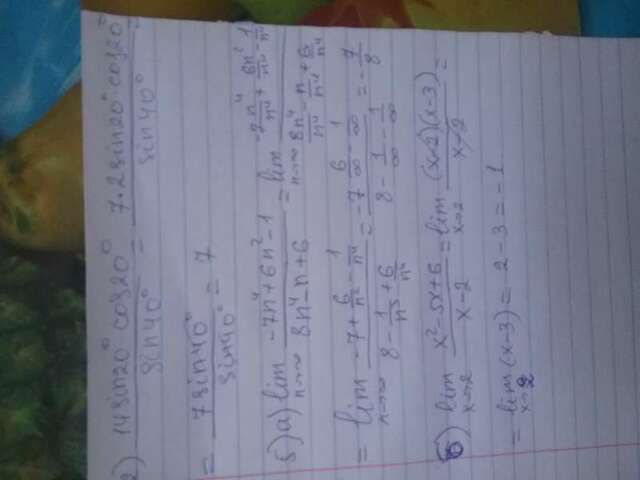 2) 14sin20° cos20° / sin40° = 7•2sin20°·cos20° / sin40° =
= 7sin40° / sin40° = 7
5) a) lim n→∞ (-7n⁴+6n²-1) / (8n⁴-n+6) = lim n→∞ (-7n⁴/n⁴ + 6n²/n⁴ - 1/n⁴) / (8n⁴/n⁴ - n/n⁴ + 6/n⁴)
= lim n→∞ (-7 + 6/n² - 1/n⁴) / (8 - 1/n³ + 6/n⁴) = (-7 6/∞ - 1/∞) / (8 - 1/∞ - 1/∞) = -7/8
б) lim x→2 (x²-5x+6) / (x-2) = lim x→2 (x-2)(x-3) / (x-2) =
= lim x→2 (x-3) = 2-3 = -1